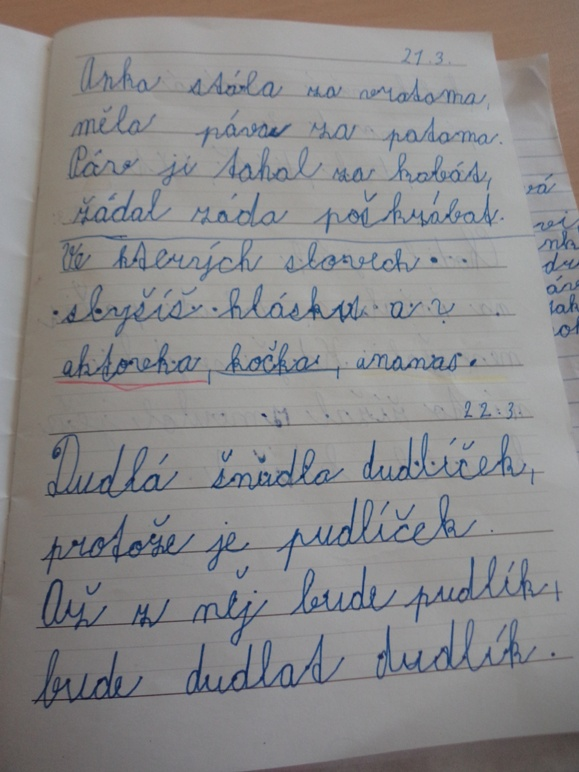 21.3.
Anka stála za vratama,
měla páva za patama.
Páv ji tahal za kabát,
žádal záda poškrábat.
Ve kterých slovech
slyšíš hlásku a?
aktovka, kočka, ananas.
22.3.
Dudlá šnudla dudlíček,
protože je pudlíček.
Až z něj bude pudlík,
bude dudlat dudlík.